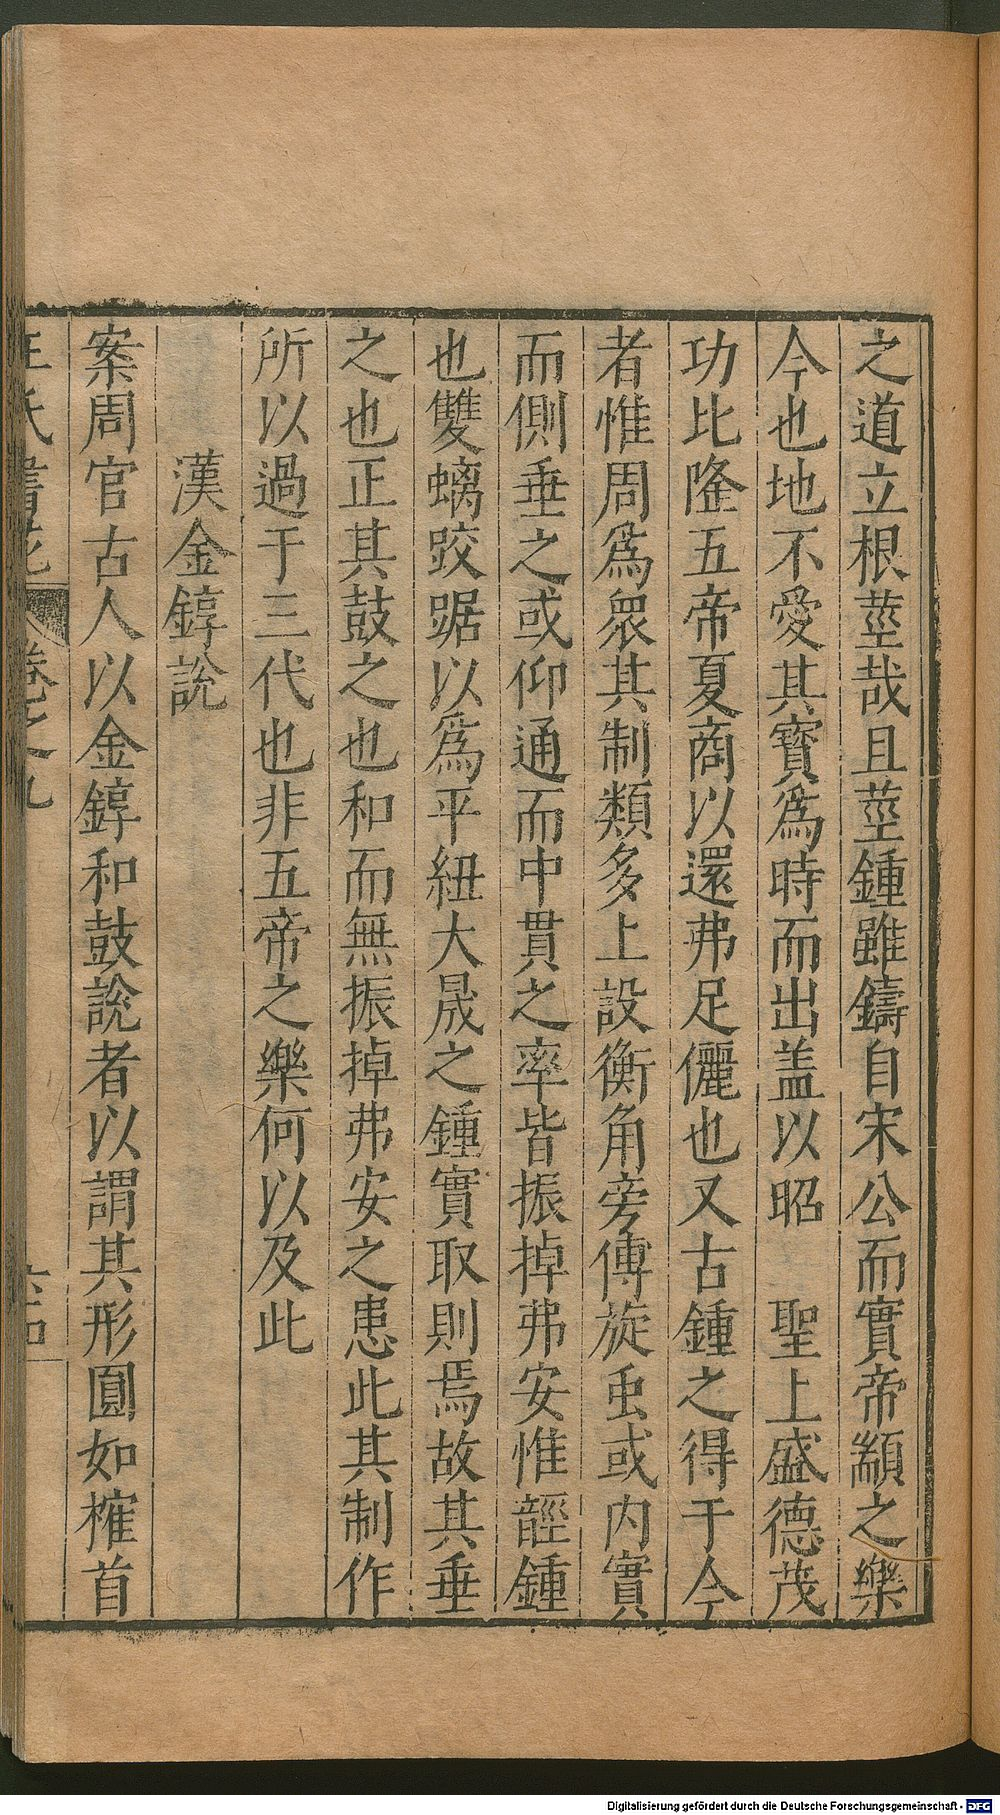 之道立根莖哉且莖鍾雖鑄自宋公而實帝顓之樂
今也地不愛其寶爲時而出盖以昭　聖上盛德茂
功比隆五帝夏商以還弗足儷也又古鍾之得于今
者惟周爲衆其制類多上設衡角旁傅旋虫或内實
而側垂之或仰通而中貫之率皆振掉弗安惟𧇸鍾
也雙螭跤踞以爲平紐大晟之鍾實取則焉故其垂
之也正其鼓之也和而無振掉弗安之患此其制作
所以過于三代也非五帝之樂何以及此
漢金錞說
案周官古人以金錞和鼓說者以謂其形圓如榷首
王氏書苑　卷之九
Digitalisierung gefördert durch die Deutsche Forschungsgemeinschaft - DFG